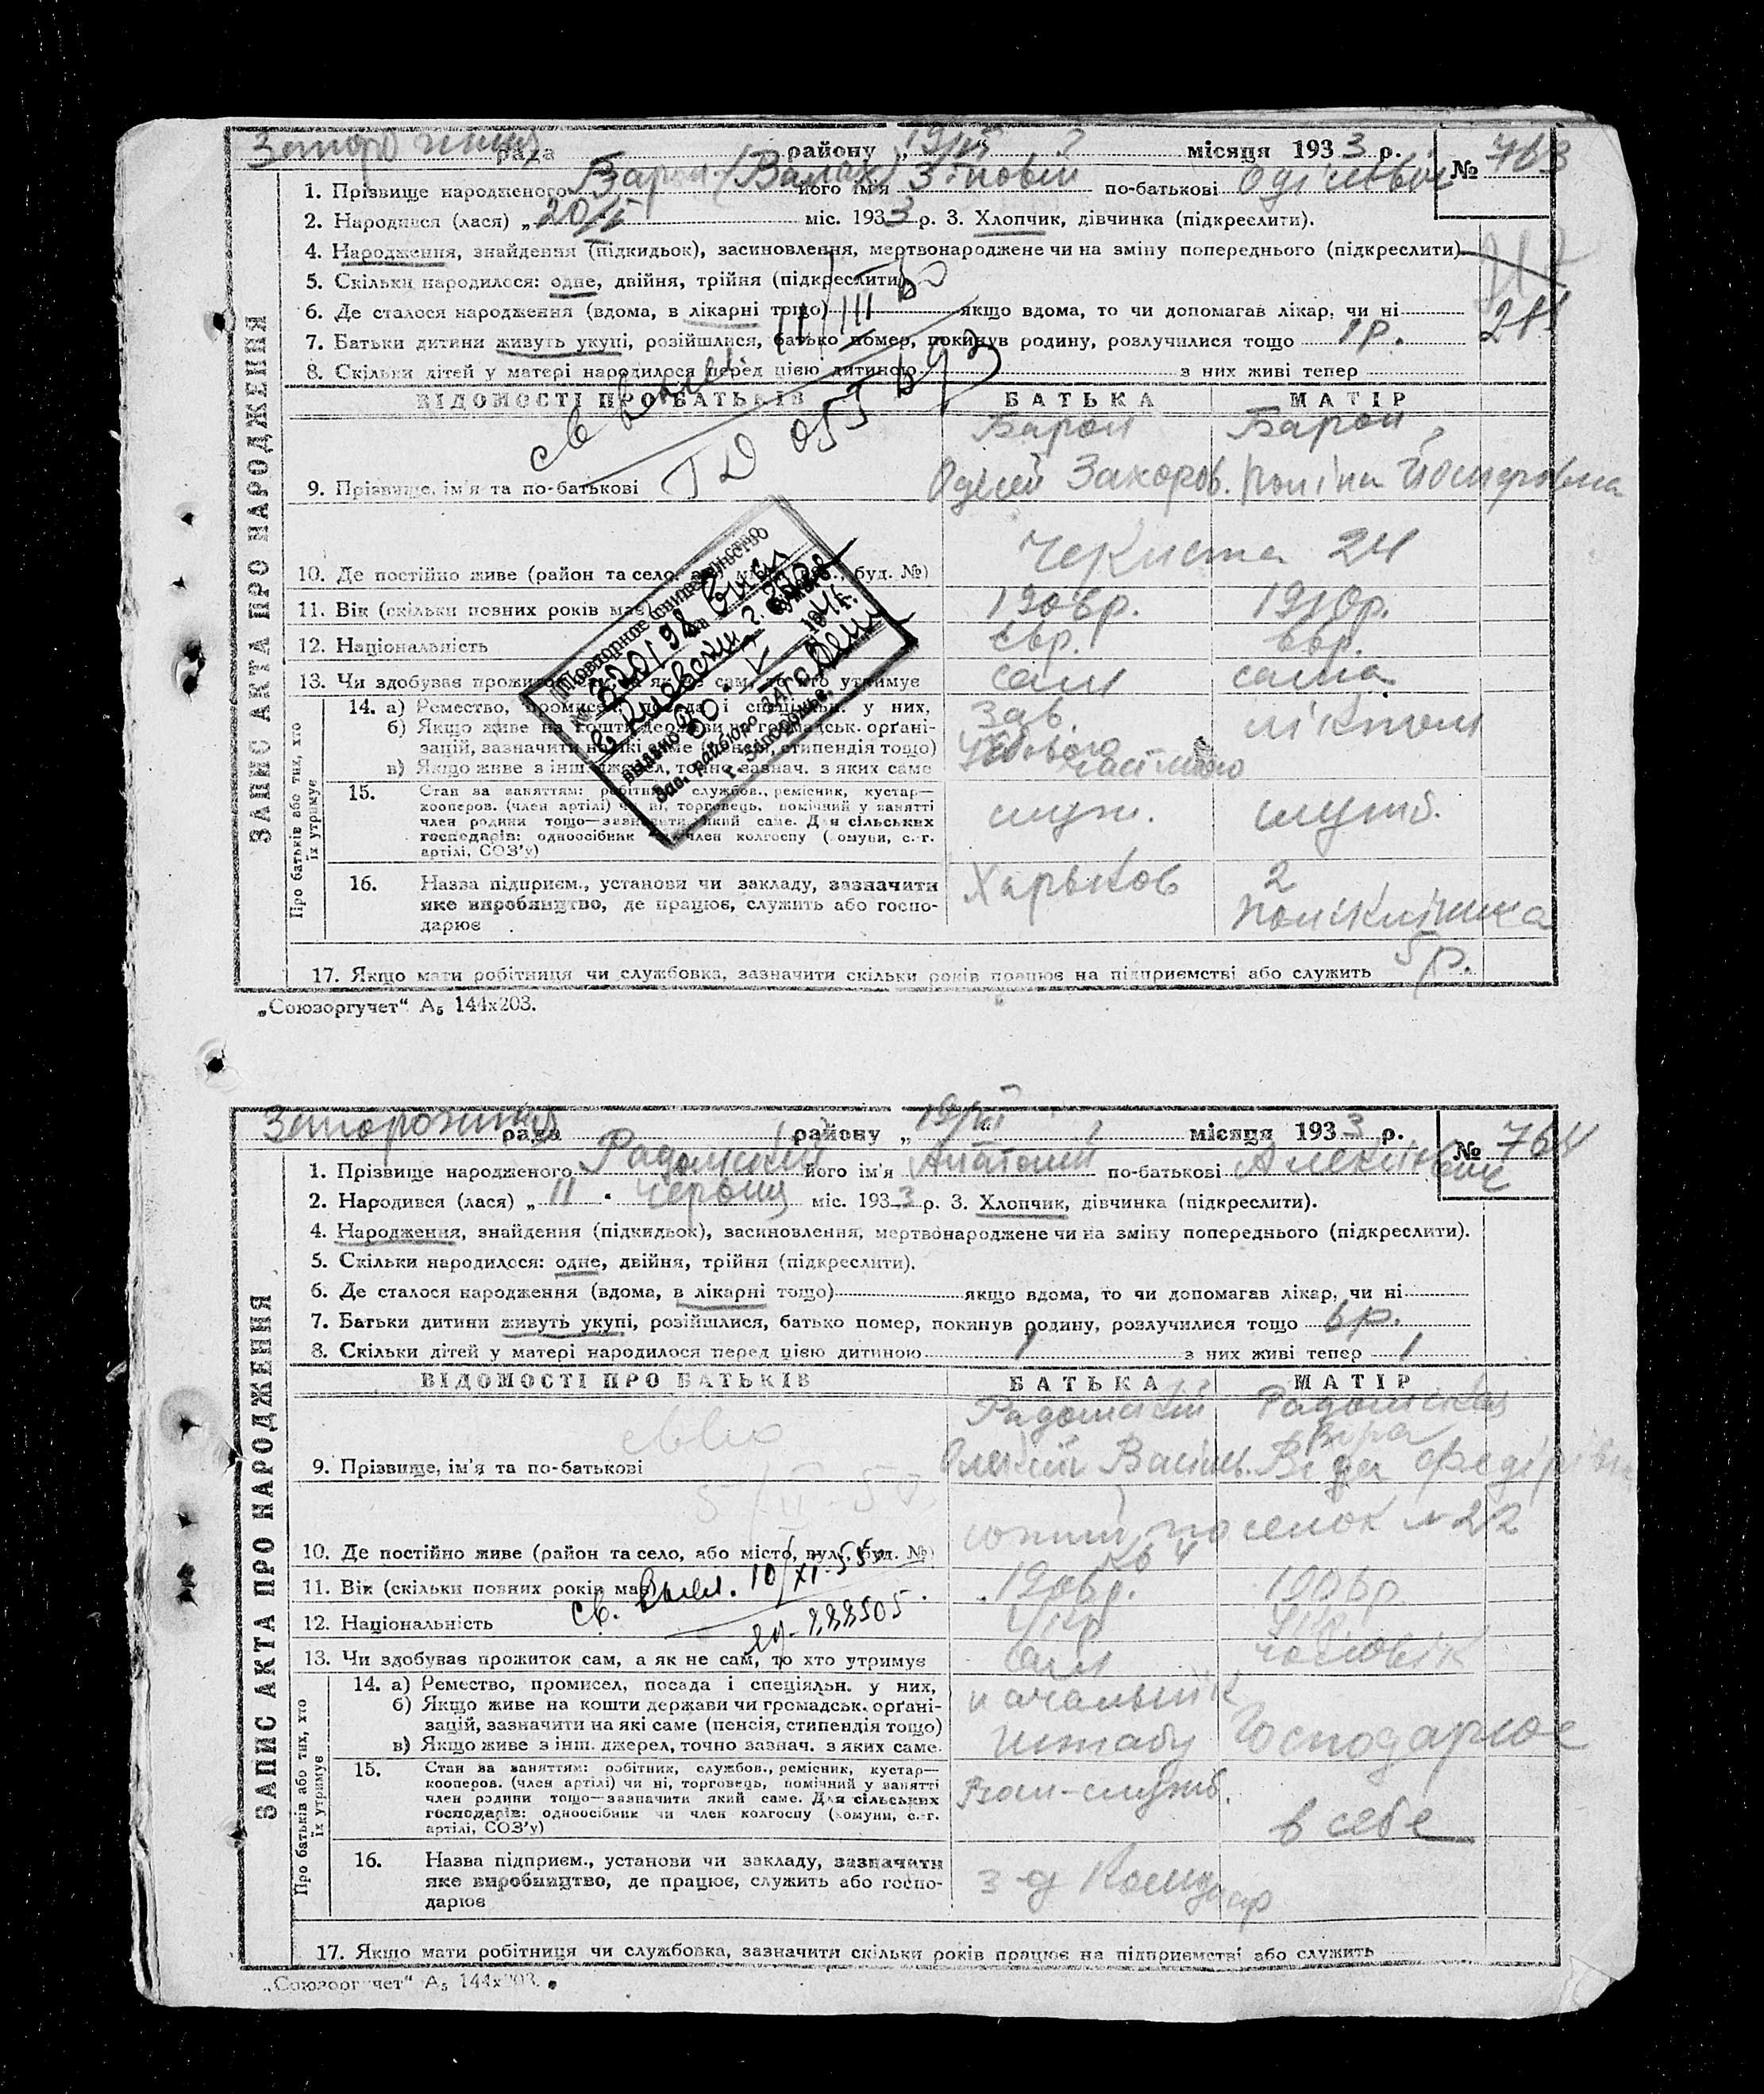 рада району „19/VI“ місяця 1933 р.
№ 763
1. Прізвище народженого Барон його ім'я по-батькові
2. Народився (лася) „20/ міс. 1933 р. 3. Хлопчик, дівчинка (підкреслити).
4. Народження, знайдення (підкидьок), засиновлення, мертвонароджене чи на зміну попереднього (підкреслити)
5. Скільки народилося: одне, двійня, трійня (підкреслити)
6. Де сталося народження (вдома, в лікарні тощо) якщо вдома, то чи допомагав лікар, чи ні
7. Батьки дитини живуть укупі, розійшлися, батько помер, покинув родину, розлучилися тощо 1 р.
8. Скільки дітей у матері народилося перед цією дитиною з них живі тепер
ЗАПИС АКТА ПРО НАРОДЖЕННЯ
ВІДОМОСТІ ПРО БАТЬКІВ БАТЬКА МАТІР
Барон Барон
9. Прізвище, ім'я та по-батькові
Чекиста 24
10. Де постійно живе (район та село, буд. №)
11. Вік (скільки повних років має) 1906р. 1910р.
12. Національність євр. євр.
13. Чи здобуває прожиток сам, а як не сам, то хто утримує сам сама
Про батьків або тих, хто їх утримує
14. а) Ремество, промисел, посада і спеціяльн. у них, зав.
б) Якщо живе на кошти держави чи громадськ. органі-
зацій, зазначити на які саме (пенсія, стипендія тощо)
в) Якщо живе з інш. джерел, точно зазнач. з яких саме
15. Стан за заняттям: робітник, службов., ремісник, кустар—
кооперов. (член артілі) чи ні, торговець, помічний у занятті
член родини тощо—зазначити який саме. Для сільських
господарів: одноосібник чи член колгоспу (комуни, с.-г.
артілі, СОЗ'у)
служ. служб.
16. Назва підприєм., установи чи закладу, зазначити
яке виробництво, де працює, служить або госпо-
дарює
Харьков 2
поліклініка
17. Якщо мати робітниця чи службовка, зазначити скільки років працює на підприємстві або служить 5 р.
„Союзоргучет“ А5 144х203.
Повторное свидетельство
№ 320198
выдано 30 V 1946 г.
Зав. райбюро ЗАГС
г. Запорожье.
рада району „19/VI“ місяця 1933 р.
№ 764
1. Прізвище народженого Радомський його ім'я Анатолій по-батькові
2. Народився (лася) „11“ червня міс. 1933 р. 3. Хлопчик, дівчинка (підкреслити).
4. Народження, знайдення (підкидьок), засиновлення, мертвонароджене чи на зміну попереднього (підкреслити).
5. Скільки народилося: одне, двійня, трійня (підкреслити).
6. Де сталося народження (вдома, в лікарні тощо) якщо вдома, то чи допомагав лікар, чи ні
7. Батьки дитини живуть укупі, розійшлися, батько помер, покинув родину, розлучилися тощо 6 р.
8. Скільки дітей у матері народилося перед цією дитиною 1 з них живі тепер 1
ЗАПИС АКТА ПРО НАРОДЖЕННЯ
ВІДОМОСТІ ПРО БАТЬКІВ БАТЬКА МАТІР
Радомський Радомська
Віра
9. Прізвище, ім'я та по-батькові
посёлок № 22
10. Де постійно живе (район та село, або місто, вул., буд. №)
11. Вік (скільки повних років має) 1906р. 1906р.
св. выел. 10/XI-55
12. Національність Укр Укр
888505
13. Чи здобуває прожиток сам, а як не сам, то хто утримує сам чоловік
Про батьків або тих, хто їх утримує
14. а) Ремество, промисел, посада і спеціяльн. у них,
б) Якщо живе на кошти держави чи громадськ. органі-
зацій, зазначити на які саме (пенсія, стипендія тощо)
в) Якщо живе з інш. джерел, точно зазнач. з яких саме.
начальник
штабу Господарює
15. Стан за заняттям: робітник, службов., ремісник, кустар—
кооперов. (член артілі) чи ні, торговець, помічний у занятті
член родини тощо—зазначити який саме. Для сільських
господарів: одноосібник чи член колгоспу (комуни, с.-г.
артілі, СОЗ'у)
в себе
16. Назва підприєм., установи чи закладу, зазначити
яке виробництво, де працює, служить або госпо-
дарює
з-д Комунар
17. Якщо мати робітниця чи службовка, зазначити скільки років працює на підприємстві або служить
„Союзоргучет“ А5 144х203.